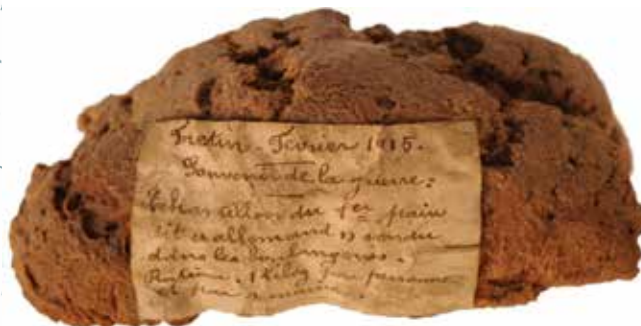 Fretin - Fevrier 1915.
Souvenir de la guerre:
Echantillon du 1er pain
dit "allemand" vendu
dans les boulangeries.
Ration: 1 kilog par personne
et par semaine.